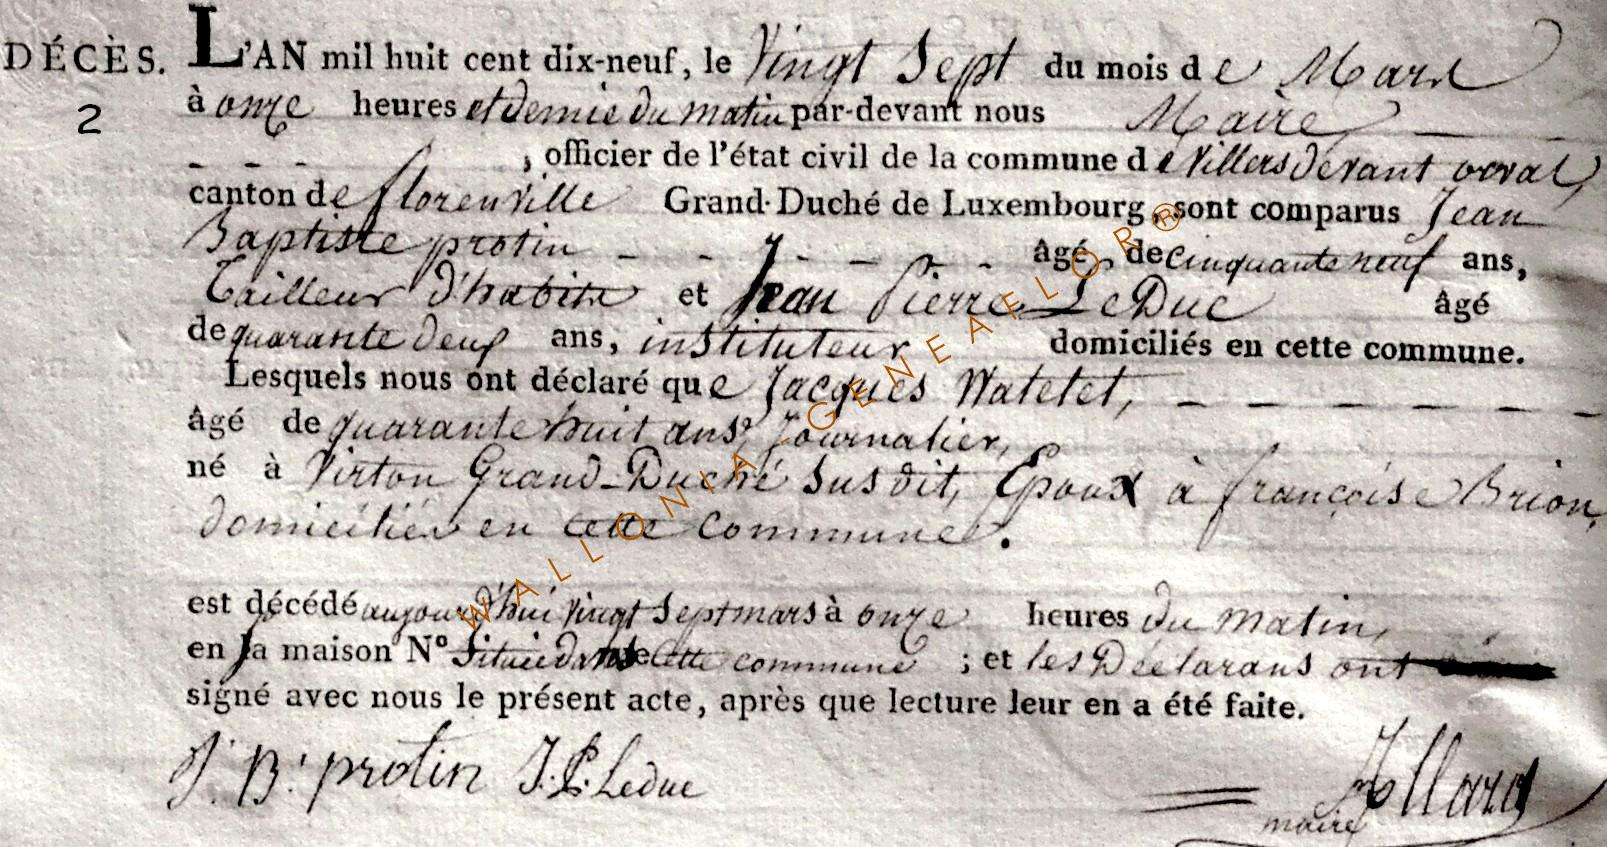 DÉCÈS. L'AN mil huit cent dix-neuf, le Vingt Sept du mois de Mars
2 à onze heures et demie du matin par-devant nous Maire
, officier de l'état civil de la commune de Villers devant orval,
canton de florenville Grand-Duché de Luxembourg, sont comparus Jean
Baptiste protin âgé de cinquante neuf ans,
Tailleur d'habits et Jean Pierre LeDuc âgé
de quarante deux ans, instituteur domiciliés en cette commune.
Lesquels nous ont déclaré que Jacques Watelet,
âgé de quarante huit ans, Journalier,
né à Virton Grand-Duché susdit, Epoux à françoise Brion,
domiciliés en cette commune.
est décédé aujourd'hui vingt Sept mars à onze heures du matin,
en la maison N° Située dans cette commune ; et les Déclarans ont
signé avec nous le présent acte, après que lecture leur en a été faite.
J. Bt protin J.P. Leduc
maire
WALLONIA-GENEAFLOR®